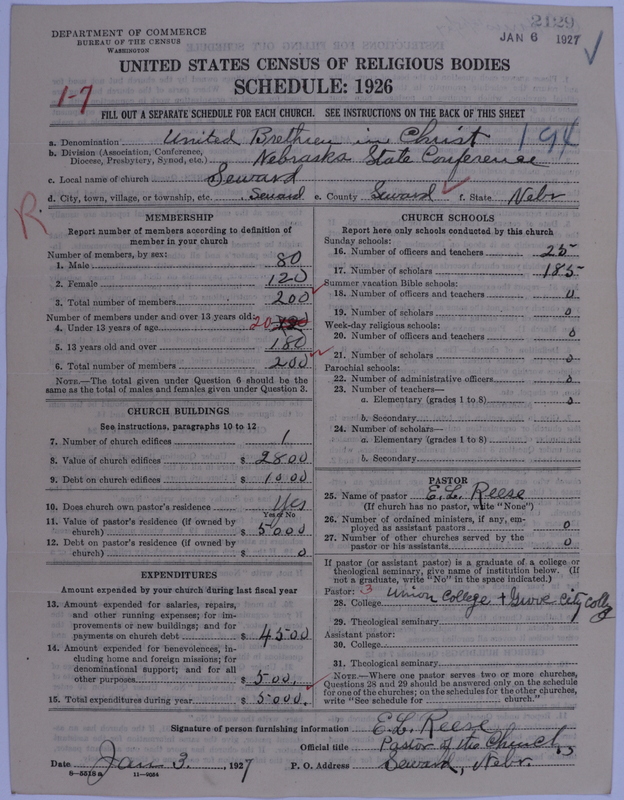 2129
JAN 6 1927
DEPARTMENT OF COMMERCE
BUREAU OF THE CENSUS
WASHINGTON
UNITED STATES CENSUS OF RELIGIOUS BODIES
SCHEDULE: 1926
1-7
FILL OUT A SEPARATE SCHEDULE FOR EACH CHURCH. SEE INSTRUCTIONS ON THE BACK OF THIS SHEET
194
a. Denomination United Brethren in Christ
b. Division (Association, Conference, Diocese, Presbytery, Synod, etc.) Nebraska State Conference
c. Local name of church Seward
d. City, town, village, or township, etc. Seward e. County Seward f. State Nebr
R.
MEMBERSHIP
Report number of members according to definition of
member in your church
Number of members, by sex:
1. Male 80
2. Female 120
3. Total number of members 200
Number of members under and over 13 years old:
4. Under 13 years of age 20
5. 13 years old and over 180
6. Total number of members 200
NOTE.—The total given under Question 6 should be
same as the total of males and females given under Question 3.
CHURCH BUILDINGS
See instructions, paragraphs 10 to 12
7. Number of church edifices 1
8. Value of church edifices $ 2800
9. Debt on church edifices $ 1000
10. Does church own pastor's residence? Yes
Yes or No
11. Value of pastor's residence (if owned by
church) $ 5000
12. Debt on pastor's residence (if owned by
church) $ 0
EXPENDITURES
Amount expended by your church during last fiscal year
13. Amount expended for salaries, repairs,
and other running expenses; for im-
provements or new buildings; and for
payments on church debt $ 4500
14. Amount expended for benevolences, in-
cluding home and foreign missions; for
denominational support; and for all
other purposes $ 500.
15. Total expenditures during year $ 5000.
CHURCH SCHOOLS
Report here only schools conducted by this church
Sunday schools:
16. Number of officers and teachers 25
17. Number of scholars 185
Summer vacation Bible schools:
18. Number of officers and teachers 0
19. Number of scholars 0
Week-day religious schools:
20. Number of officers and teachers 0
21. Number of scholars 0
Parochial schools:
22. Number of administrative officers 0
23. Number of teachers—
a. Elementary (grades 1 to 8) 0
b. Secondary
24. Number of scholars—
a. Elementary (grades 1 to 8)
b. Secondary
PASTOR
25. Name of pastor E.L. Reese
(If church has no pastor, write "None")
26. Number of ordained ministers, if any, em-
ployed as assistant pastors 0
27. Number of other churches served by the
pastor or his assistants 0
If pastor (or assistant pastor) is a graduate of a college or
theological seminary, give name of institution below. (If
not a graduate, write "No" in the space indicated.)
Pastor: 3
28. College Union College + Grove City Colleg
29. Theological seminary
Assistant pastor:
30. College
31. Theological seminary
NOTE.—Where one pastor serves two or more churches,
Questions 28 and 29 should be answered only on the schedule
for one of the churches; on the schedules for the other churches,
write "See schedule for church."
Signature of person furnishing information E.L. Reese
Official title Pastor of the Church
Date Jan 3, 1927 P. O. Address Seward, Nebr.
8-5518a 11-9054